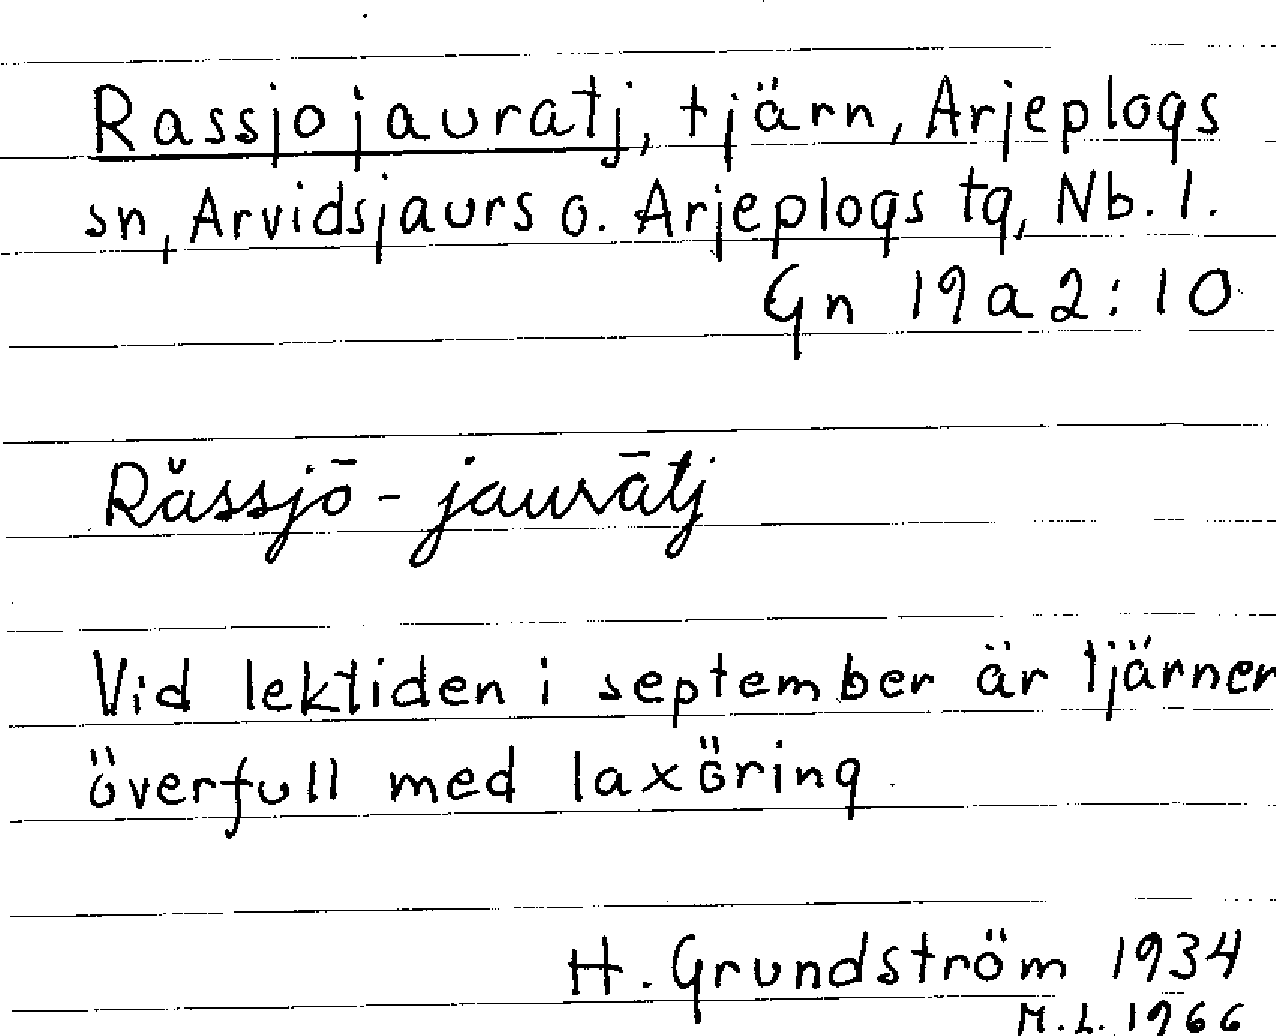 Rassjojauratj, tjärn, Arjeplogs
sn, Arvidsjaurs o. Arjeplogs tg, Nb. l.
Gn 19a2:10
Răssjō - jaurātj
Vid lektiden i september är tjärnen
överfull med laxöring.
H. Grundström 1934
M.L. 1966